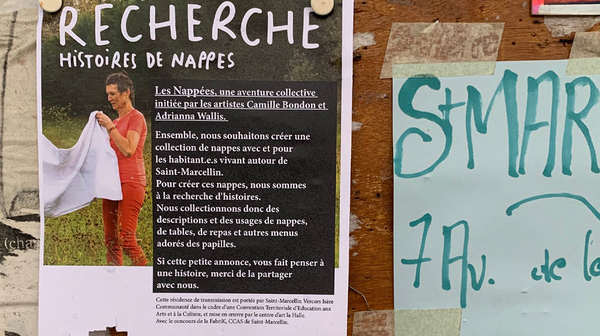 RECHERCHE
HISTOIRES DE NAPPES
Les Nappées, une aventure collective
initiée par les artistes Camille Bondon et
Adrianna Wallis.
Ensemble, nous souhaitons créer une
collection de nappes avec et pour
les habitant.e.s vivant autour de
Saint-Marcellin.
Pour créer ces nappes, nous sommes
à la recherche d'histoires.
Nous collectionnons donc des
descriptions et des usages de nappes,
de tables, de repas et autres menus
adorés des papilles.
Si cette petite annonce, vous fait penser à
une histoire, merci de la partager
avec nous.
Cette résidence de transmission est portée par Saint-Marcellin Vercors Isère
Communauté dans le cadre d'une Convention Territoriale d'Education aux
Arts et à la Culture, et mise en œuvre par le centre d'art la Halle.
Avec le concours de la FabriK, CCAS de Saint-Marcellin.
St MAR
7 Av. de